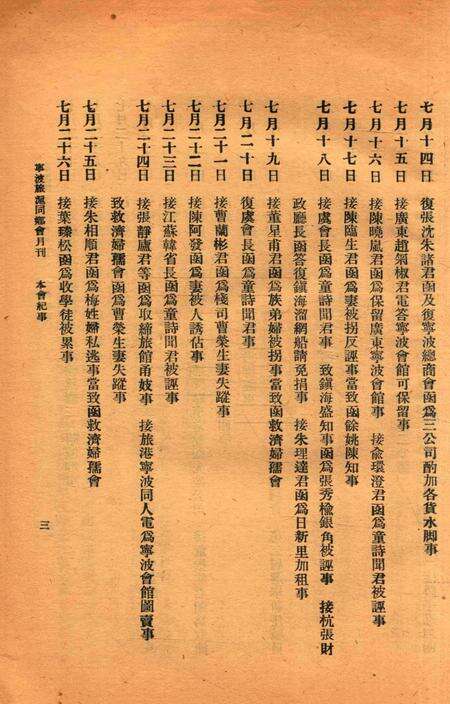 七月十四日　復張沈朱諸君函及復寧波總商會函爲三公司酌加各貨水脚事
七月十五日　接廣東趙錒椒君電答寧波會館可保留事
七月十六日　接陳曉嵐君函爲保留廣東寧波會館事　接俞環澄君函爲童詩聞君被誣事
七月十七日　接陳臨生君函爲妻被拐反誣事當致函餘姚陳知事
七月十八日　接虞會長函爲童詩聞君事　致鎮海盛知事函爲張秀檢銀角被誣事　接杭張財
政廳長函答復鎮海溜網船請免捐事　接朱理達君函爲日新里加租事
七月十九日　接董星甫君函爲族弟婦被拐事當致函救濟婦孺會
七月二十日　復虞會長函爲童詩聞君事
七月二十一日　接曹蘭彬君函爲棧司曹榮生妻失蹤事
七月二十二日　接陳阿發函爲妻被人誘佔事
七月二十三日　接江蘇韓省長函爲童詩聞君被誣事
七月二十四日　接張靜廬君等函爲取締旅館甬妓事　接旅港寧波同人電爲寧波會館圖賣事
致救濟婦孺會函爲曹榮生妻失蹤事
七月二十五日　接朱相順君函爲梅姓婦私逃事當致函救濟婦孺會
七月二十六日　接葉瑧松函爲收學徒被累事
寧波旅滬同鄉會月刊　本會紀事
三